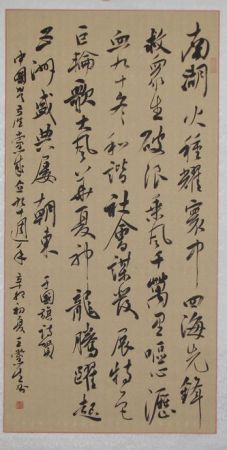 南湖火種耀寰中四海先鋒
救眾生破浪乘風千萬里嘔心瀝
血九十冬和諧社會謀發展特色
巨輪歌大風華夏神龍騰躍起
五洲盛典屢朝東 于國旗詩賀
中國共產黨成立九十週年 辛卯初夏王生書